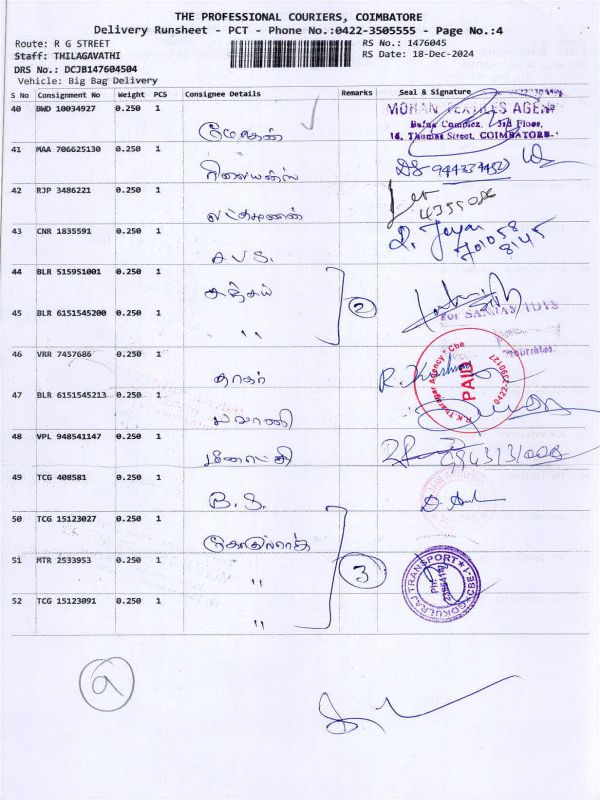 THE PROFESSIONAL COURIERS, COIMBATORE
Delivery Runsheet - PCT - Phone No.:0422-3505555 - Page No.:4
Route: R G STREET
RS No.: 1476045
Staff: THILAGAVATHI
RS Date: 18-Dec-2024
DRS No.: DCJB147604504
Vehicle: Big Bag Delivery
S No Consignment No Weight PCS Consignee Details Remarks Seal & Signature
40 BWD 10034927 0.250 1
மோகன்
MOHAN TEXTILES AGEN
Bafna Complex, 3rd Floor,
16, Thomas Street, COIMBATORE-
41 MAA 706625130 0.250 1
42 RJP 3486221 0.250 1
லட்சுமணன்
43 CNR 1835591 0.250 1
A.V.S.
44 BLR 515951001 0.250 1
சஞ்சய்
2
45 BLR 6151545200 0.250 1
"
For SANJAY TOYS
46 VRR 7457686 0.250 1
தாகர்
R. Krishna
P.K. Tharagar Agency - Cbe
PAID
47 BLR 6151545213 0.250 1
பவானி
48 VPL 948541147 0.250 1
மீனாட்சி
49 TCG 408581 0.250 1
B.S.
50 TCG 15123027 0.250 1
கோகுல்ராஜ்
51 MTR 2533953 0.250 1
"
3
GOKULRAJ TRANSPORT
CBE-1
52 TCG 15123091 0.250 1
"
9